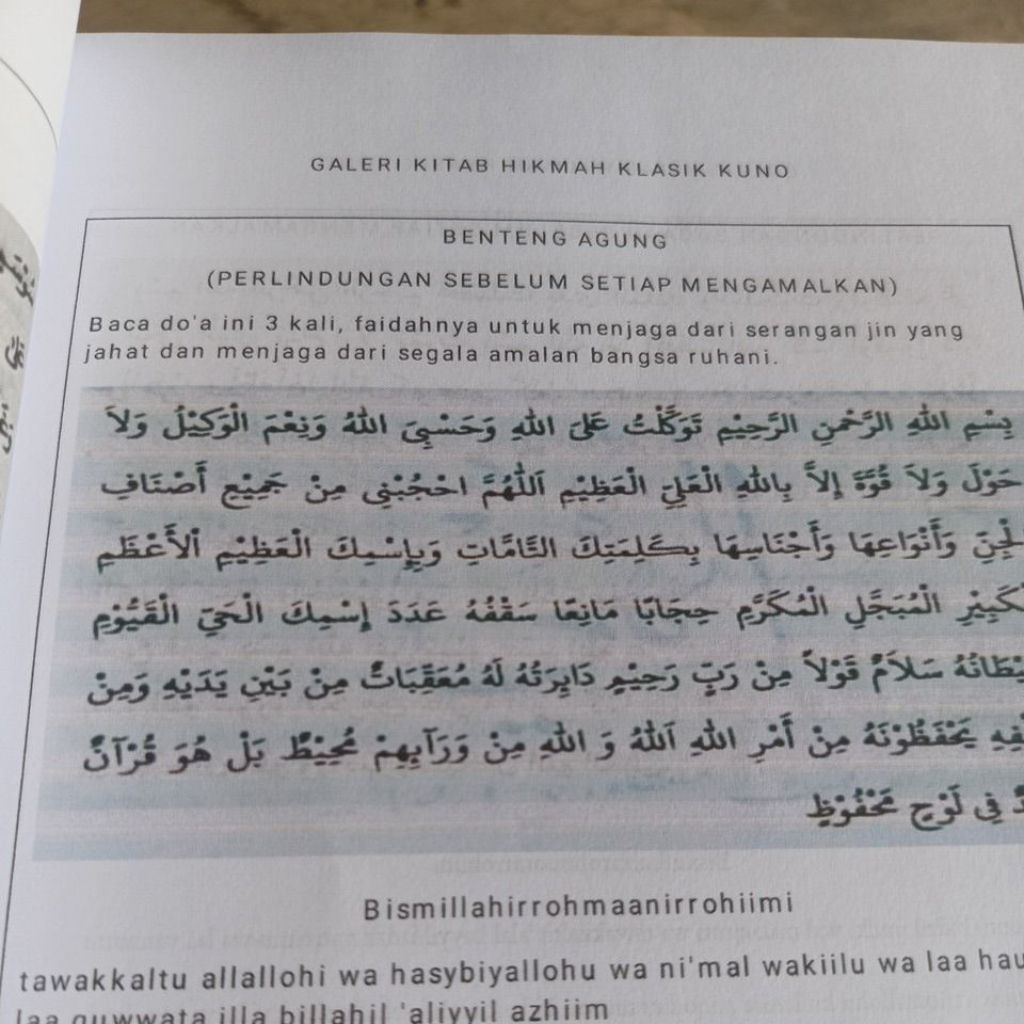 GALERI KITAB HIKMAH KLASIK KUNO
BENTENG AGUNG
(PERLINDUNGAN SEBELUM SETIAP MENGAMALKAN)
Baca do'a ini 3 kali, faidahnya untuk menjaga dari serangan jin yang
jahat dan menjaga dari segala amalan bangsa ruhani.
بِسْمِ اللهِ الرَّحْمٰنِ الرَّحِيْمِ تَوَكَّلْتُ عَلىَ اللهِ وَحَسْبِيَ اللهُ وَنِعْمَ الْوَكِيْلُ وَلاَ
حَوْلَ وَلاَ قُوَّةَ إِلاَّ بِاللهِ الْعَلِيِّ الْعَظِيْمِ اَللّٰهُمَّ احْجُبْنِى مِنْ جَمِيْعِ أَصْنَافِ
لْجِنِّ وَأَنْوَاعِهَا وَأَجْنَاسِهَا بِكَلِمَتِكَ التَّامَّاتِ وَبِإِسْمِكَ الْعَظِيْمِ اْلأَعْظَمِ
لْكَبِيْرِ الْمُبَجَّلِ الْمُكَرَّمِ حِجَابًا مَانِعًا سَقْفُهُ عَدَدَ إِسْمِكَ الْحَيِّ الْقَيُّوْمِ
يْطَانُهُ سَلاَمٌ قَوْلاً مِنْ رَبٍّ رَحِيْمٍ دَابِرَتُهُ لَهُ مُعَقِّبَاتٌ مِنْ بَيْنِ يَدَيْهِ وَمِنْ
فِهِ يَحْفَظُوْنَهُ مِنْ أَمْرِ اللهِ اَللهُ وَ اللهِ مِنْ وَرَآبِهِمْ مُحِيْطٌ بَلْ هُوَ قُرْآنٌ
دٌ فِي لَوْحٍ مَحْفُوْظٍ
Bismillahirrohmaanirrohiimi
tawakkaltu allallohi wa hasybiyallohu wa ni'mal wakiilu wa laa hau
laa quwwata illa billahil 'aliyyil azhiim